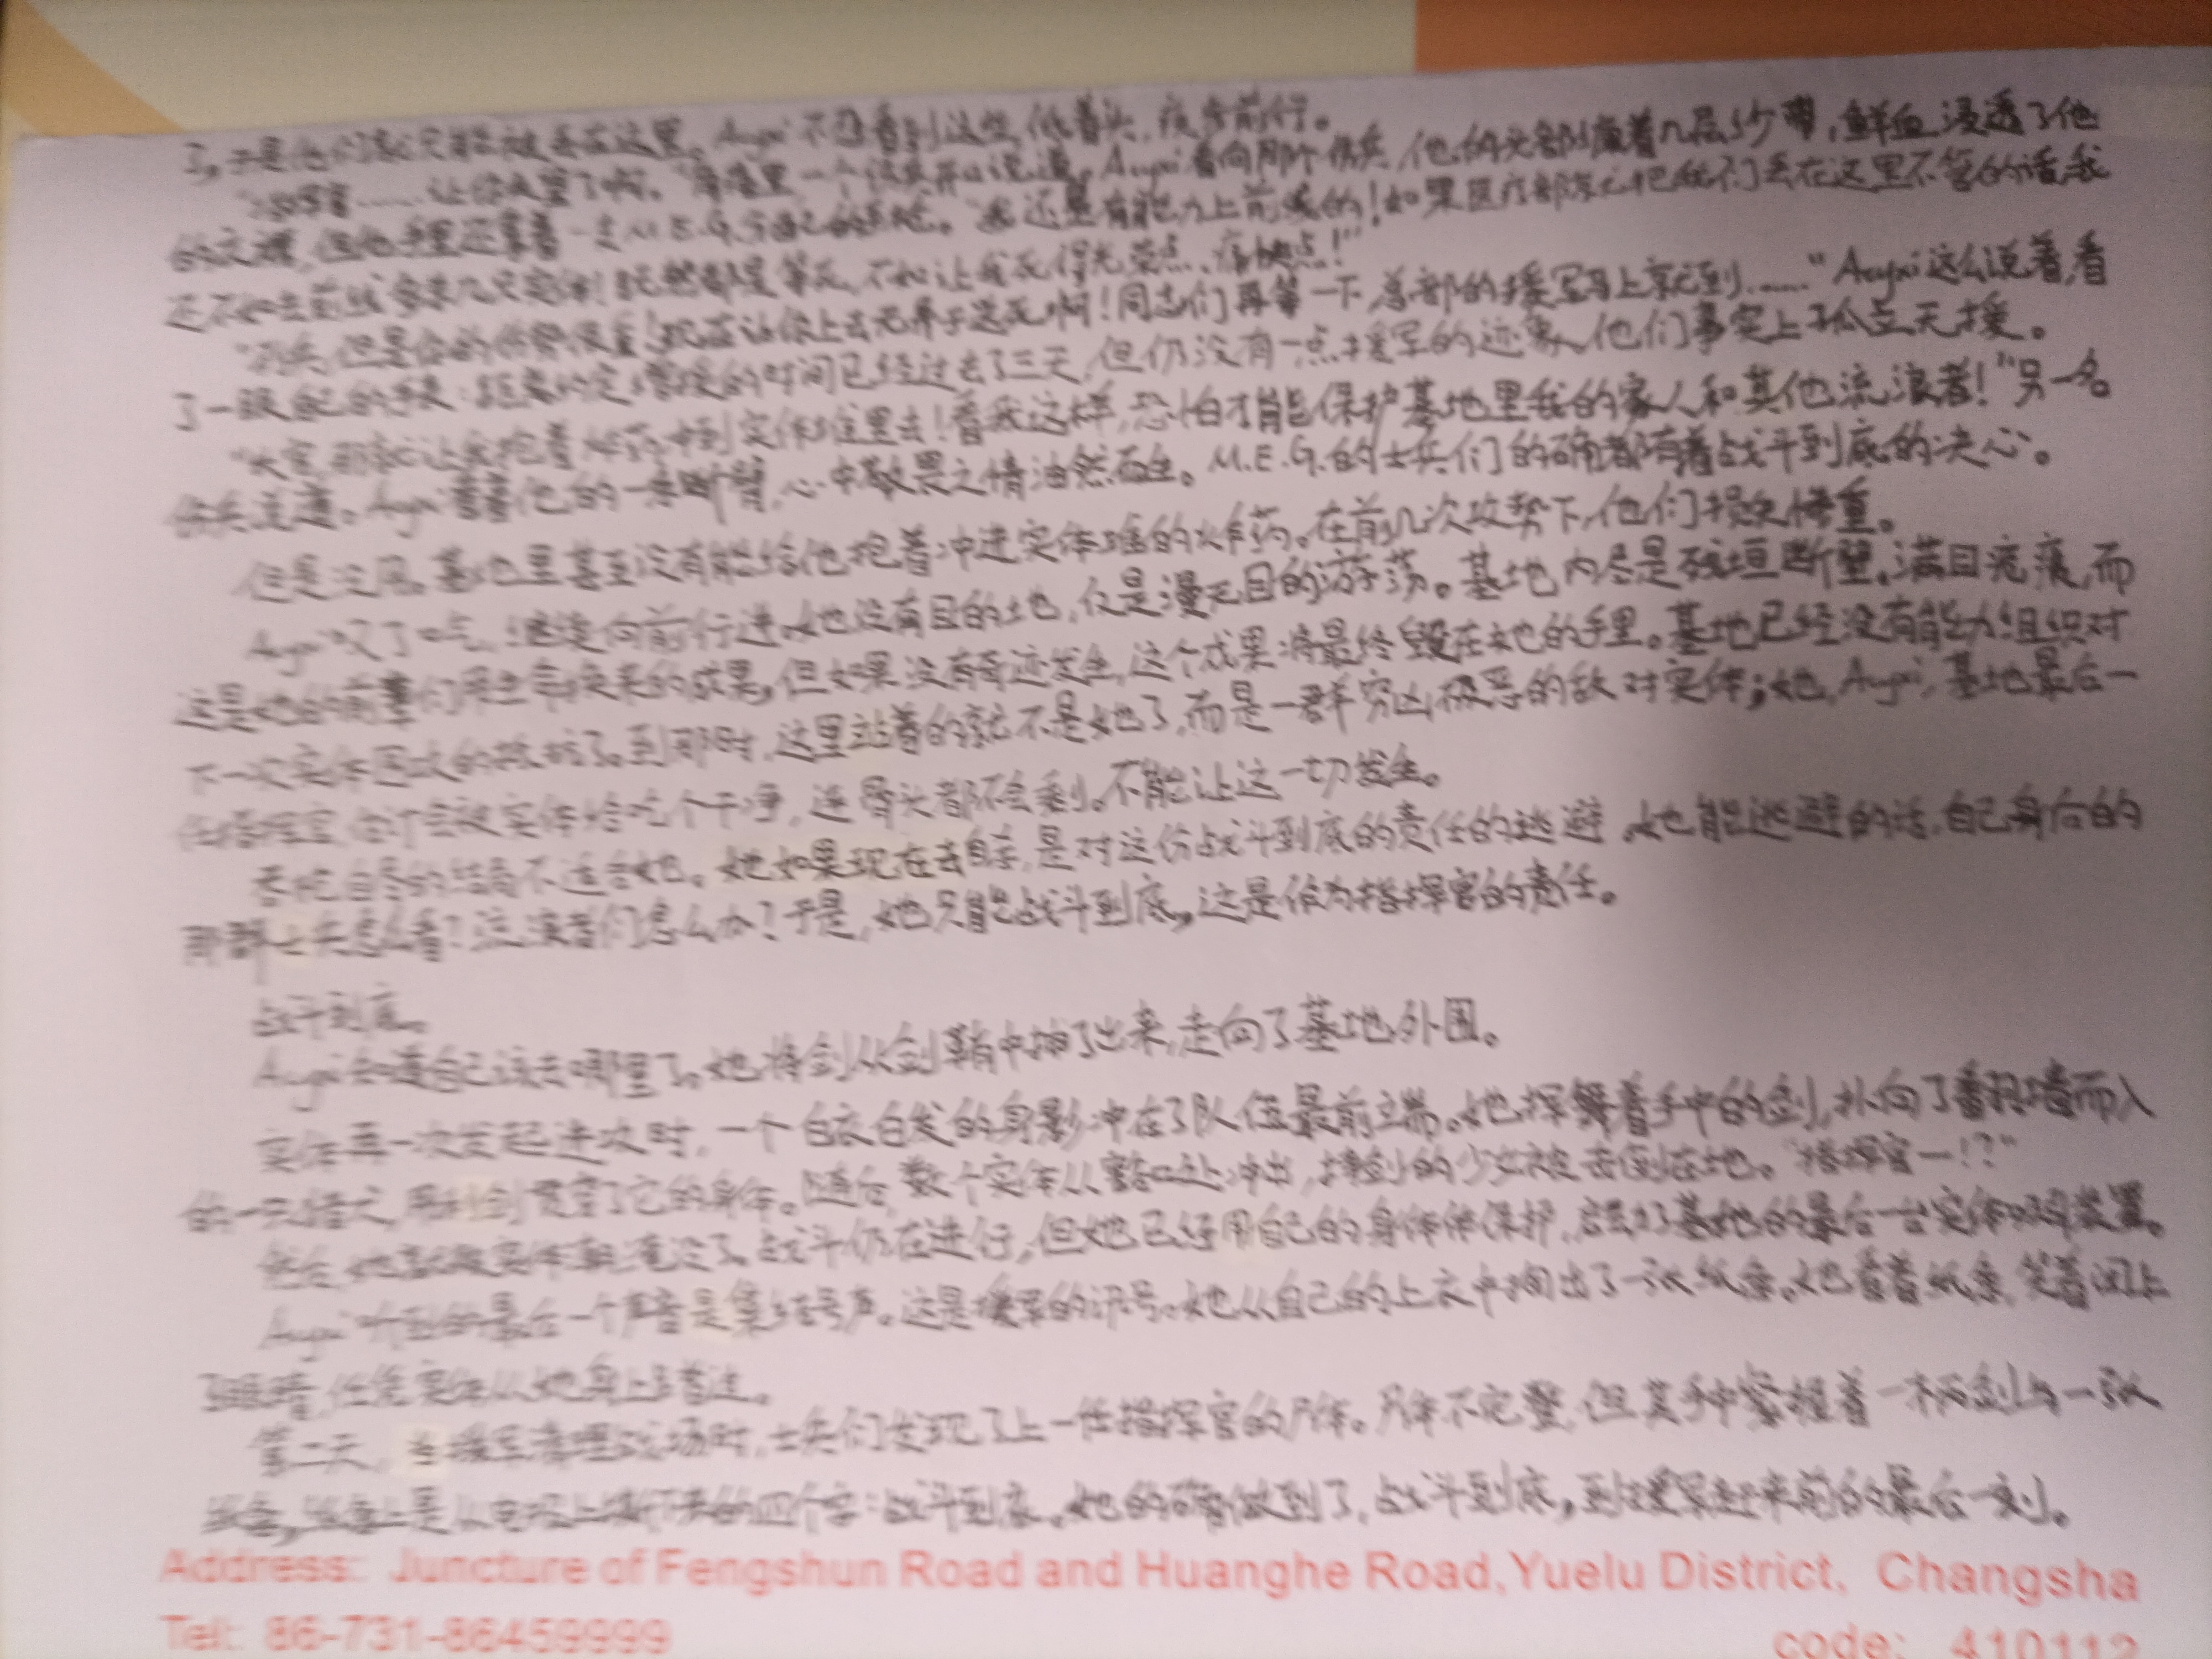 了。于是他们就只能被丢在这里。Auyxi不忍看到这些,低着头,疾步前行。
“指挥官……让你失望了啊。”角落里一个伤兵开口说道。Auyxi看向那个伤兵,他的头部缠着几层纱带,鲜血浸透了他
的衣裸,但他手里还拿着一支M.E.G.的枪。“我还是有能力上前线的!如果医疗部就把我们丢在这里不管的话,我
还不如去前线多杀几只实体!既然都是等死,不如让我死得光荣点、痛快点!”
“列兵,但是你的伤势很重!现在让你上去无异于送死啊!同志们再等一下,总部的援军马上就到……”Auyxi这么说着,看
了一眼自己的手表:距离约定增援的时间已经过去了三天,但仍没有一点援军的迹象,他们事实上孤立无援。
“长官,那就让我抱着炸药冲到实体堆里去!看我这样,恐怕才能保护基地里我的家人和其他流浪者!”另一名
伤兵说道。Auyxi看着他的一条断臂,心中敬畏之情油然而生。M.E.G.的士兵们的确都有着战斗到底的决心。
但是没用。基地里甚至没有能给他抱着冲进实体堆的炸药。在前几次攻势下,他们损失惨重。
Auyxi叹了口气,继续向前行进。她没有目的地,仅是漫无目的的游荡。基地内尽是残垣断壁,满目疮痍,而
这是她的前辈们用生命换来的成果,但如果没有奇迹发生,这个成果将最终毁在她的手里。基地已经没有能力组织对
下一次实体围攻的抵抗了。到那时,这里站着的就不是她了,而是一群穷凶极恶的敌对实体;她,Auyxi,基地最后一
任指挥官,估计会被实体给吃个干净,连骨头都不会剩。不能让这一切发生。
吞枪自尽的结局不适合她。她如果现在去自杀,是对这份战斗到底的责任的逃避。她能逃避的话,自己身后的
那群士兵怎么看?流浪者们怎么办?于是,她只能战斗到底,这是作为指挥官的责任。
战斗到底。
Auyxi知道自己该去哪里了。她将剑从剑鞘中抽了出来,走向了基地外围。
实体再一次发起进攻时,一个白衣白发的身影冲在了队伍最前端。她挥舞着手中的剑,扑向了翻墙而入
的一只猎犬,用利剑贯穿了它的身体。随后,数个实体从豁口处冲出,持剑的少女被击倒在地。“指挥官—!?”
然后,她就被实体潮淹没了。战斗仍在进行,但她已经用自己的身体作保护,启动了基地的最后一台实体装置。
Auyxi听到的最后一个声音是集结号声。这是援军的讯号。她从自己的上衣中掏出了一张纸条。她看着纸条,笑着闭上
了眼睛,任凭实体从她身上踏过。
第二天,当援军清理战场时,士兵们发现了上一任指挥官的尸体。尸体不完整,但其手中紧握着一柄剑与一张
纸条,纸条上是从电报上撕下来的四个字:战斗到底。她的确做到了,战斗到底,到援军赶来前的最后一刻。
Address: Juncture of Fengshun Road and Huanghe Road, Yuelu District, Changsha
Tel: 86-731-86459999 code: 410112